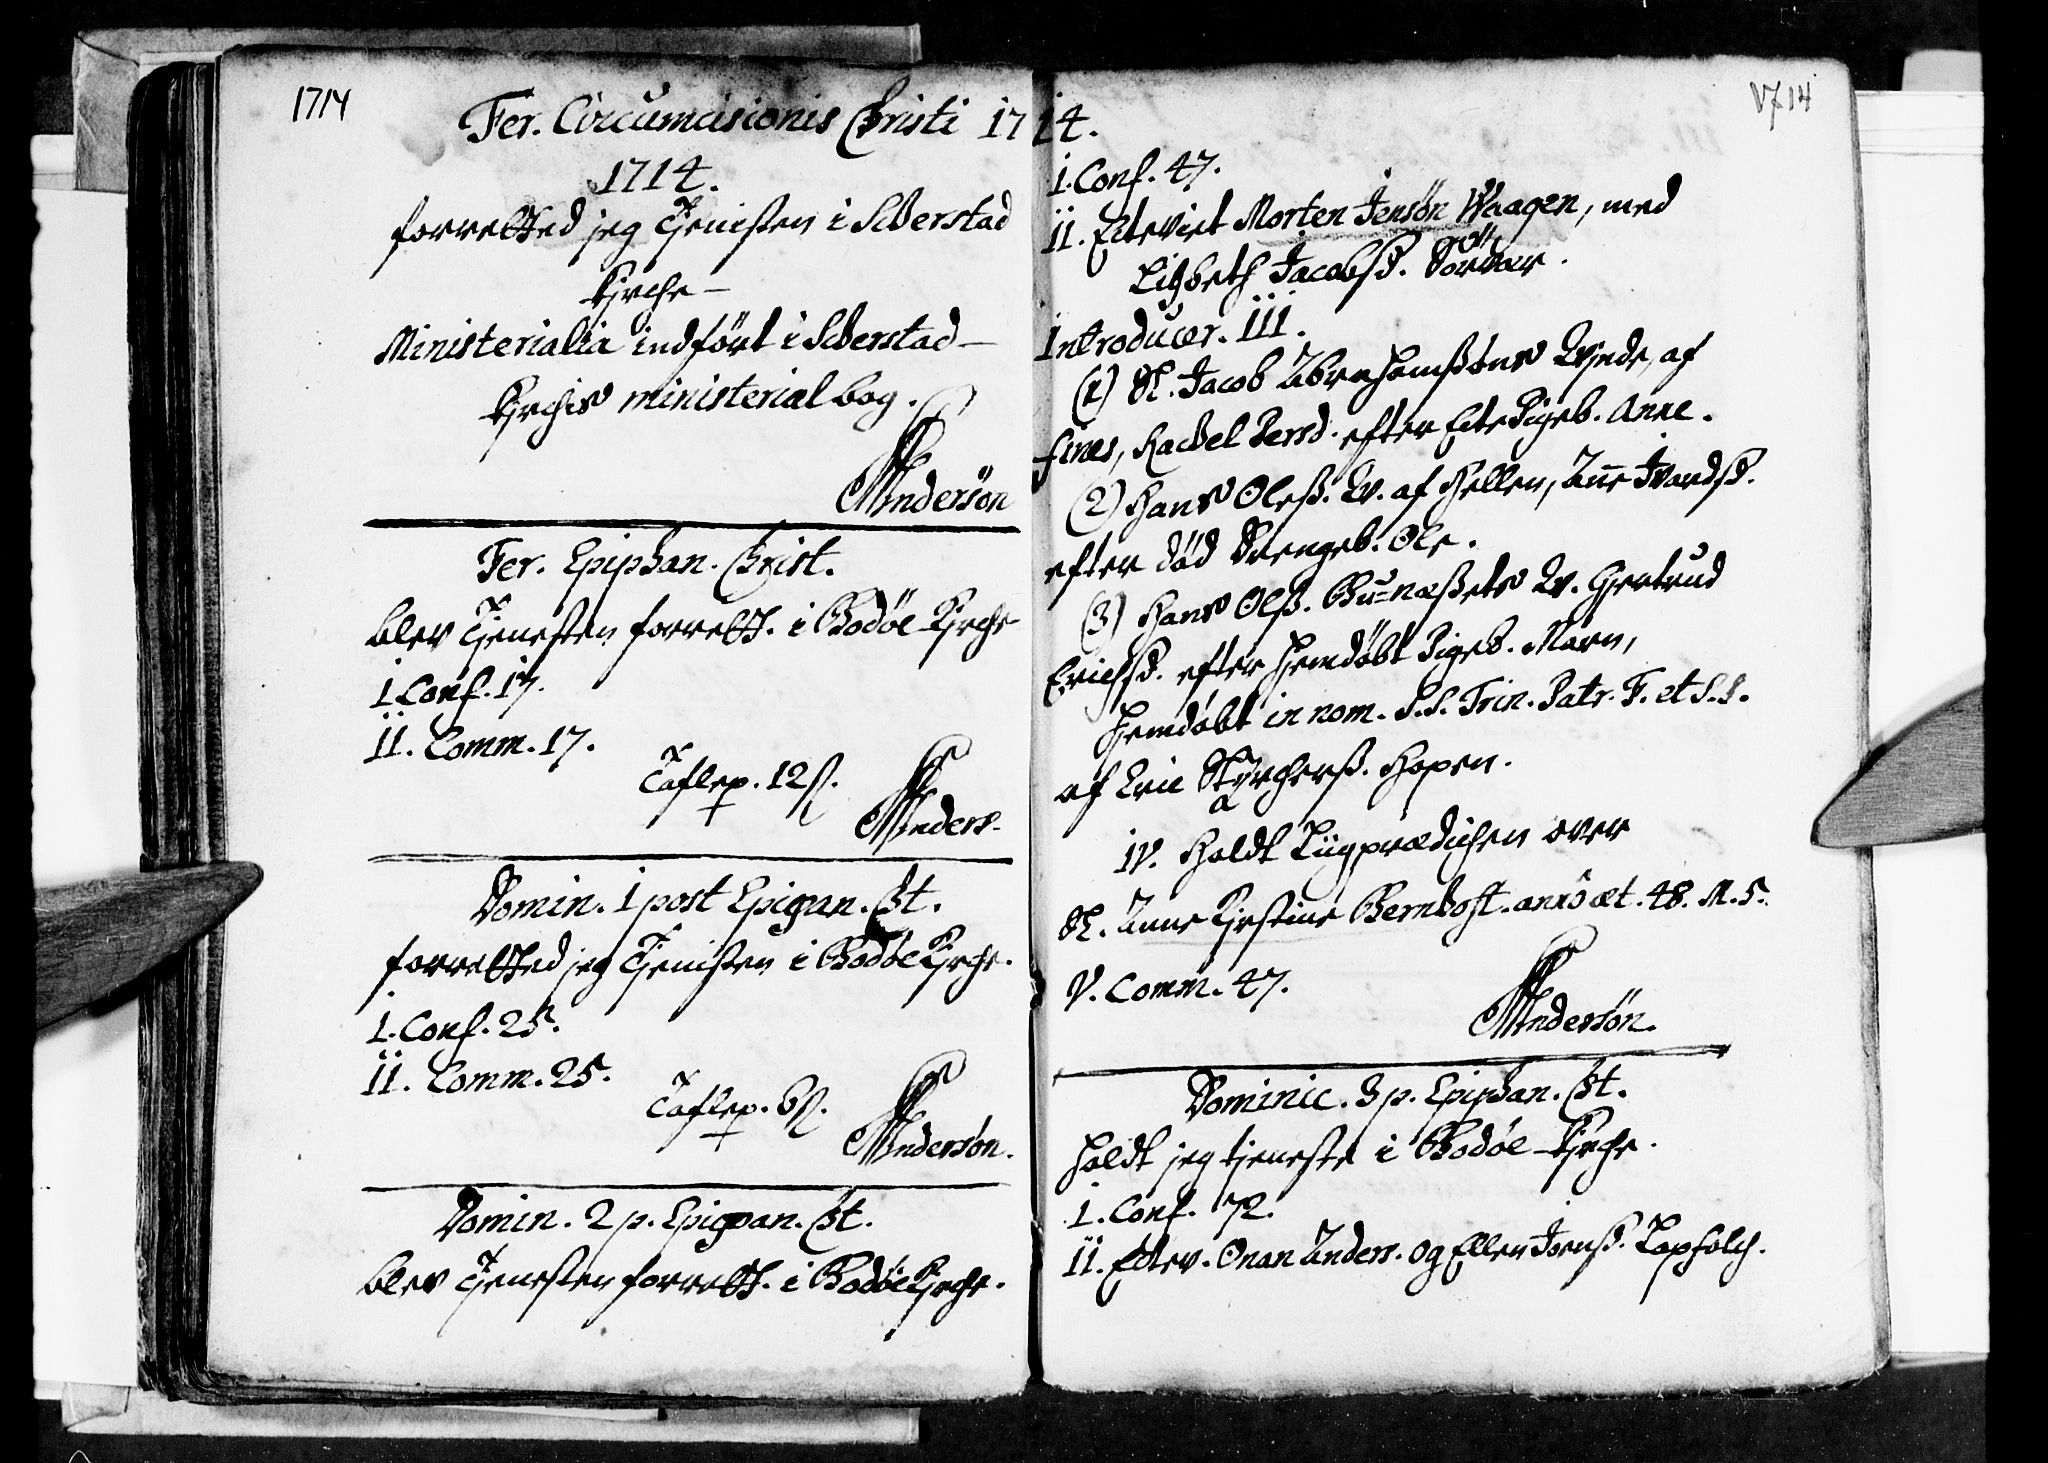 1714
Fer. Circumcisionis Christi 1714.
1714.
forretted jeg Tjenisten i Schierstad
Kirche
Ministerialia indført i Schierstad
Kirchis ministerial bog.
Andersön
Fer. Epiphan. Christ.
blev Tjenesten forrett. i Bodøe Kirche
I. Conf. 17.
II. Comm. 17.
Taflep. 12 ß.
Anders.
Domin. 1 post Epiphan. Chr̃t.
forretted jeg Tjenisten i Bodøe Kirche.
I. Conf. 25.
II. Comm. 25.
Taflep. 6 ß.
Andersön.
Domin. 2 p. Epiphan. Chr̃t.
blev Tjenesten forrett. i Bodøe Kirche.
1714
I. Conf. 47.
II. Echteviet Morten Jensön Waagen, med
Lisbeth Jacobsd. Sörvær.
Introducer. III.
(1) Sl. Jacob Abrahamsøns Qvinde, af
Fines, Rachel Persd. efter Echte Pigeb. Anne.
(2) Hans Oless. Qv. af Hellen, Anne Ivarsd.
efter død Drengeb. Ole.
(3) Hans Olss. Bu=næssets Qv. Gjertrud
Erichsd. efter hjemdøbt Pigeb. Maren,
hjemdøbt in nom. S.S. Trin. Patr. F. et S.S.
af Eric Hopen.
IV. Holdt Liigprædichen over
Sl. Anne Kirstine Bernhoft. anno æt. 48. M. 5.
V. Comm. 47.
Andersön.
Dominic. 3 p. Epiphan. Chr̃t.
holdt jeg tjeneste i Bodøe Kirche.
I. Conf. 72.
II. Echtev. Onan Anders. og Ellen Lapfolch.